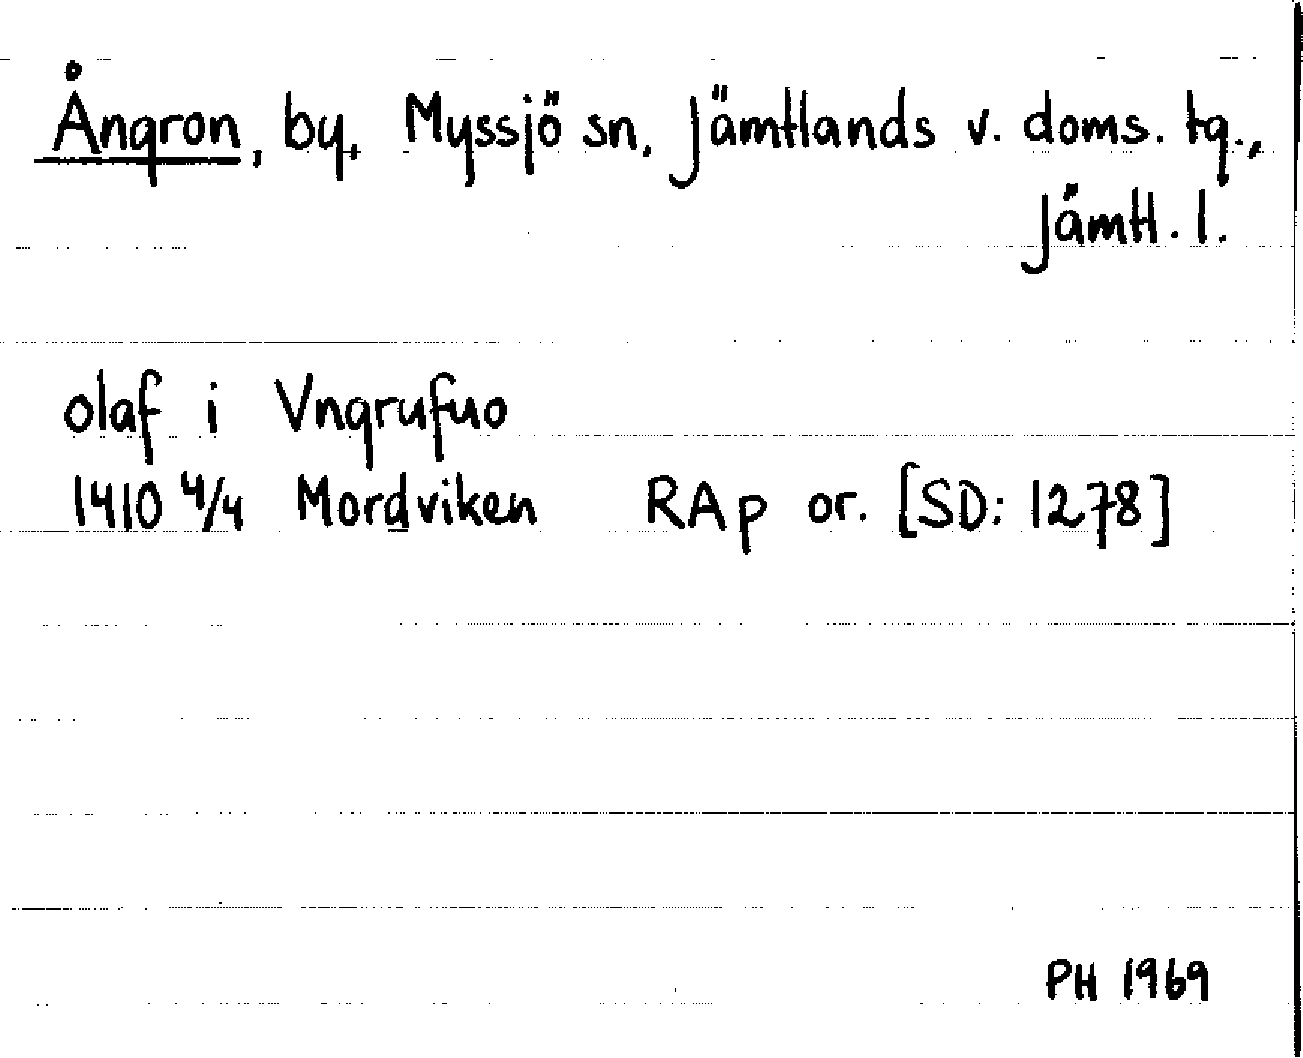 Ångron, by, Myssjö sn, Jämtlands v. doms. tg.,
Jämtl. l.
olaf i Vngrufuo
1410 4/4 Mordviken RAp or. [SD: 1278]
PH 1969